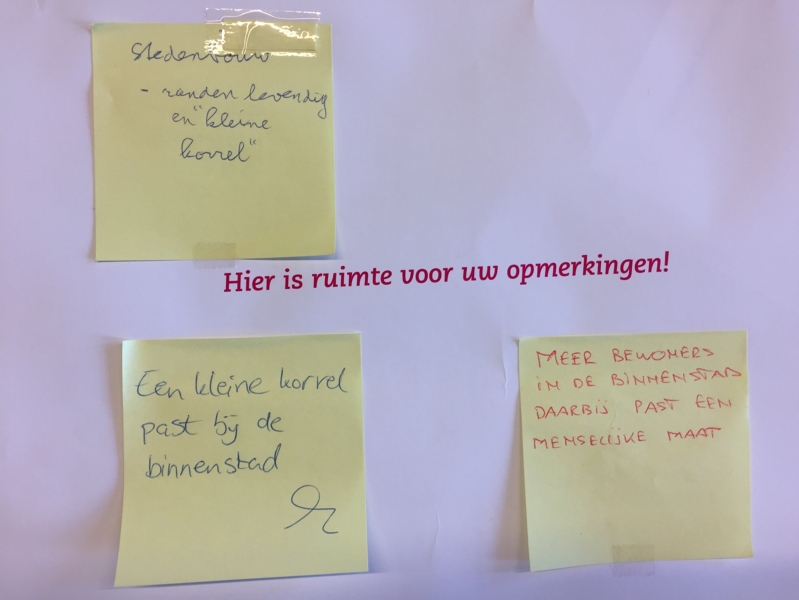 Stedenbouw
- randen levendig
en "kleine
korrel"
Hier is ruimte voor uw opmerkingen!
Een kleine korrel
past bij de
binnenstad
MEER BEWONERS
IN DE BINNENSTAD
DAARBIJ PAST EEN
MENSELIJKE MAAT